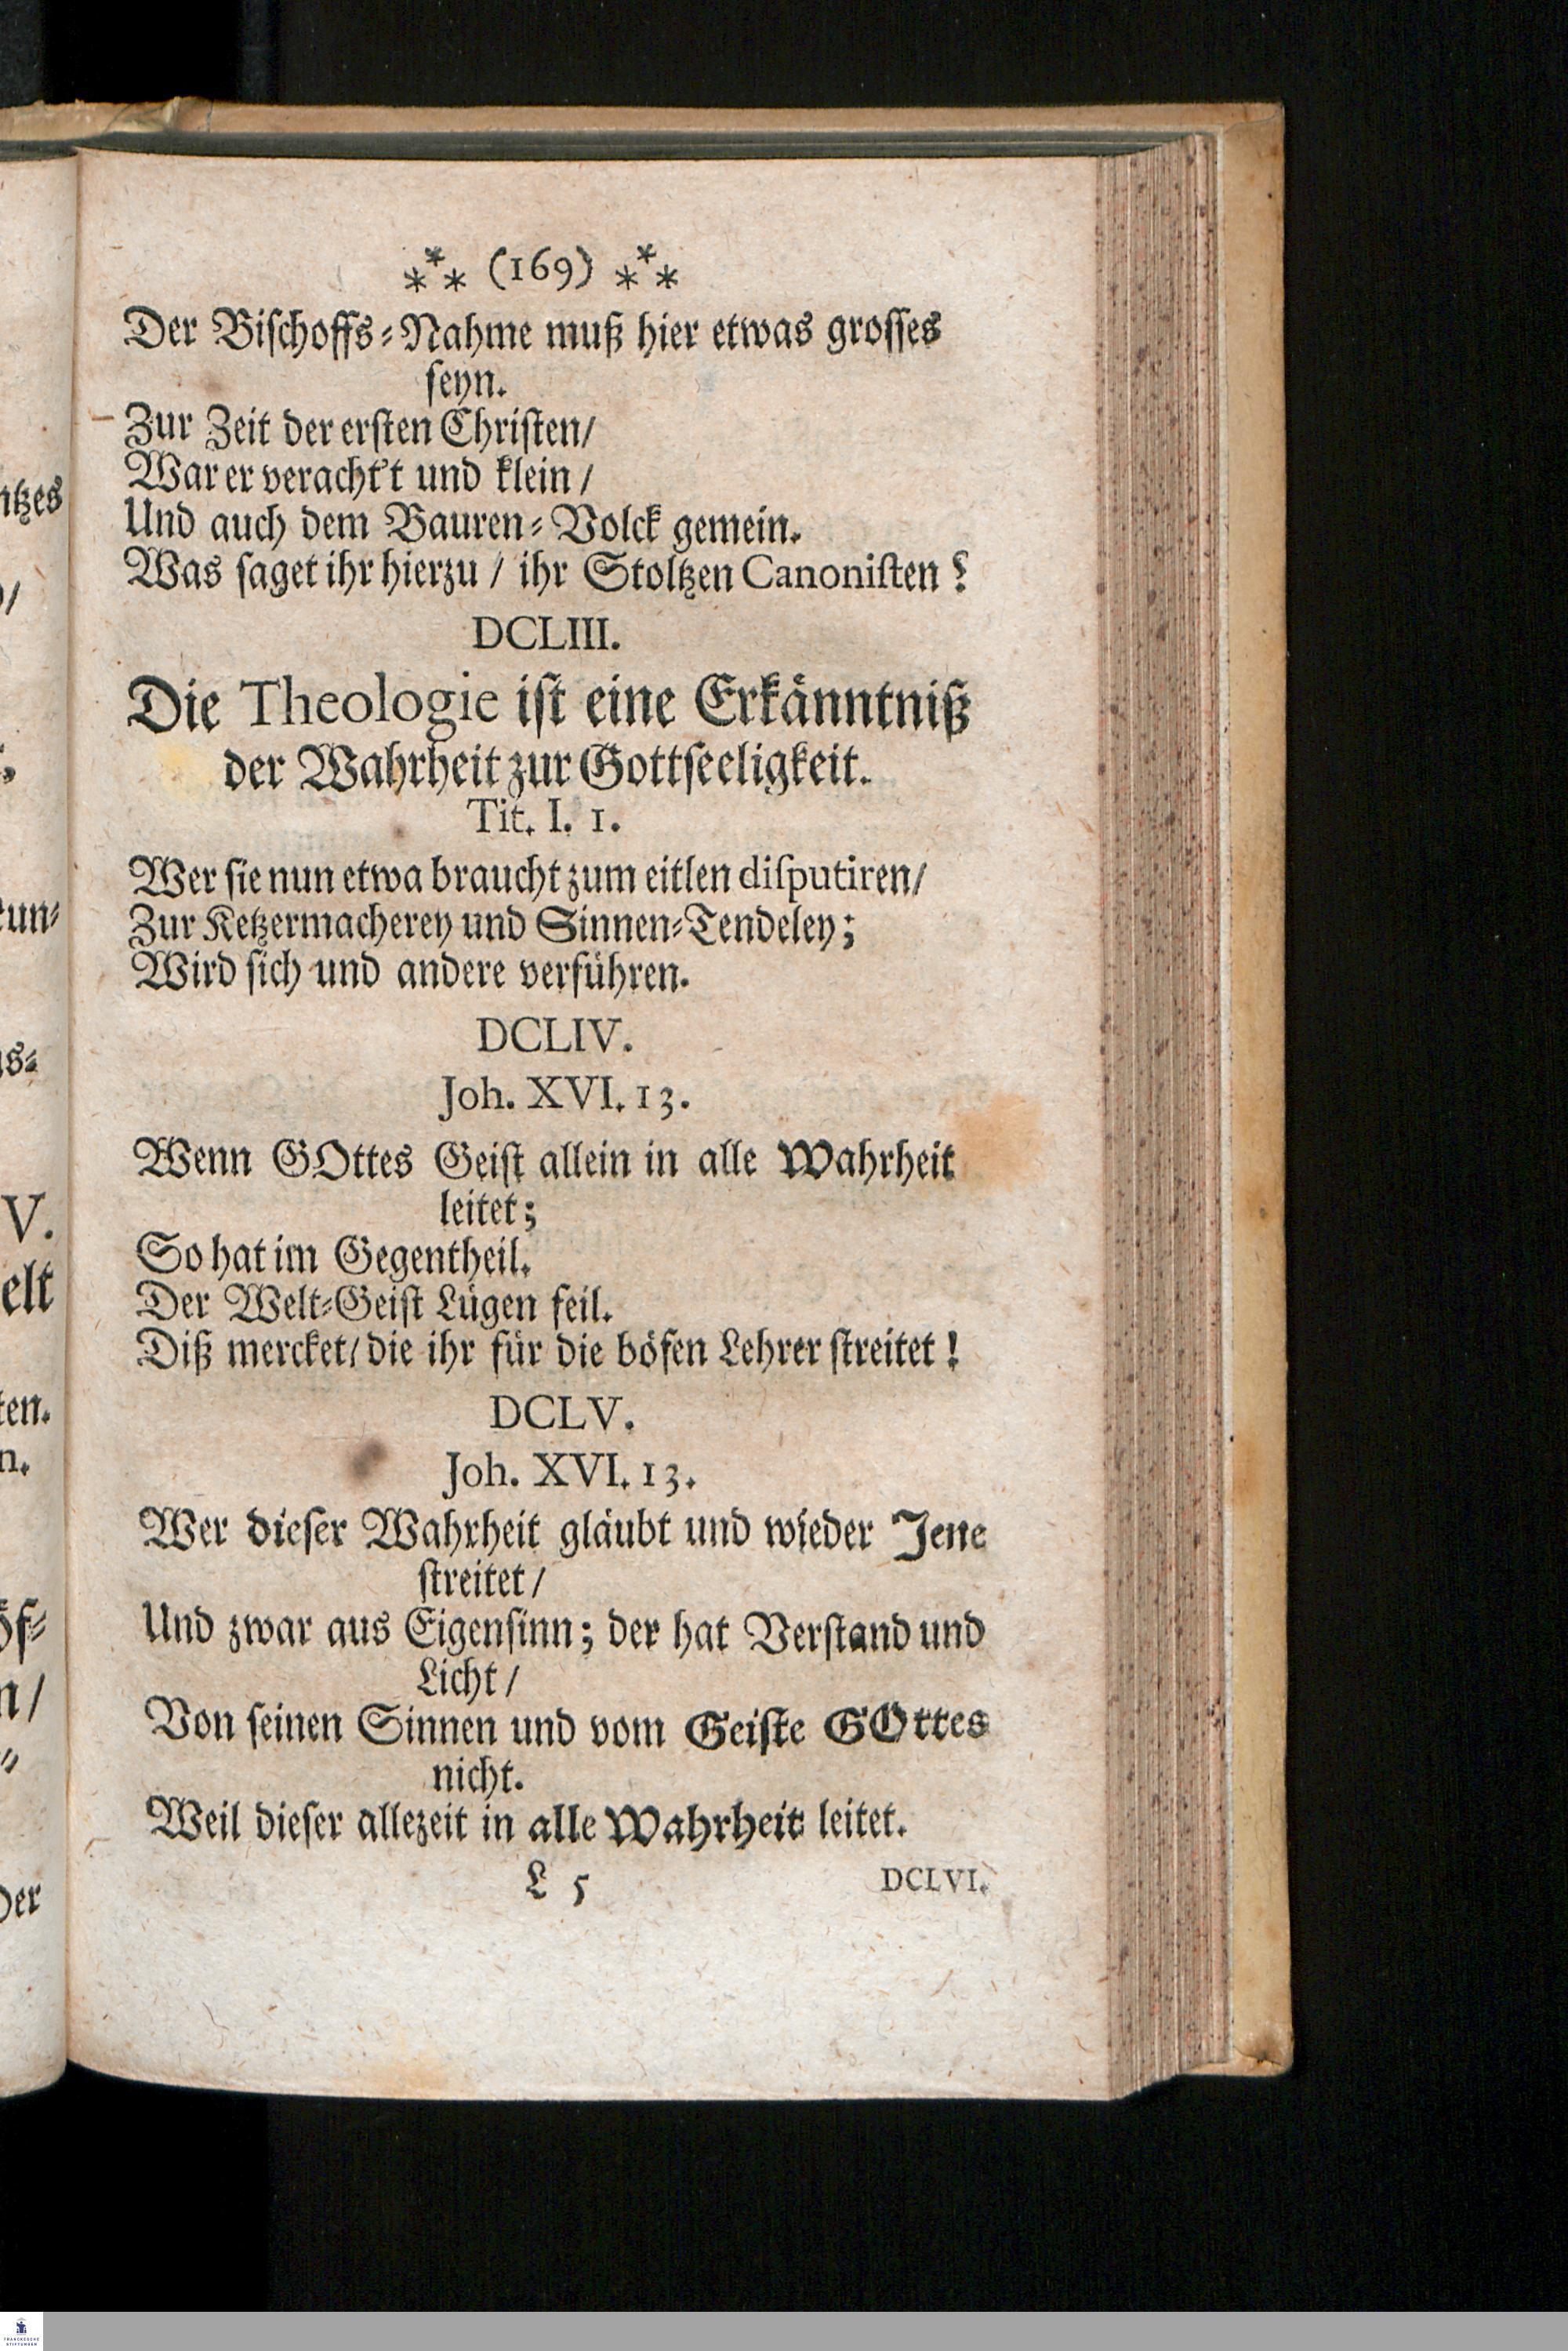 ⁂ (169) ⁂
Der Biſchoffs⸗Nahme muß hier etwas groſſes
ſeyn.
Zur Zeit der erſten Chriſten/
War er veracht't und klein/
Und auch dem Bauren⸗Volck gemein.
Was ſaget ihr hierzu / ihr Stoltzen Canoniſten?
DCLIII.
Die Theologie iſt eine Erkänntniß
der Wahrheit zur Gottſeeligkeit.
Tit. I. 1.
Wer ſie nun etwa braucht zum eitlen diſputiren/
Zur Ketzermacherey und Sinnen⸗Tendeley;
Wird ſich und andere verführen.
DCLIV.
Joh. XVI. 13.
Wenn GOttes Geiſt allein in alle Wahrheit
leitet;
So hat im Gegentheil.
Der Welt⸗Geiſt Lügen feil.
Diß mercket/ die ihr für die böſen Lehrer ſtreitet!
DCLV.
Joh. XVI. 13.
Wer dieſer Wahrheit gläubt und wieder Jene
ſtreitet/
Und zwar aus Eigenſinn; der hat Verſtand und
Licht/
Von ſeinen Sinnen und vom Geiſte GOttes
nicht.
Weil dieſer allezeit in alle Wahrheit leitet.
L 5 DCLVI.
FRANCKESCHE
STIFTUNGEN